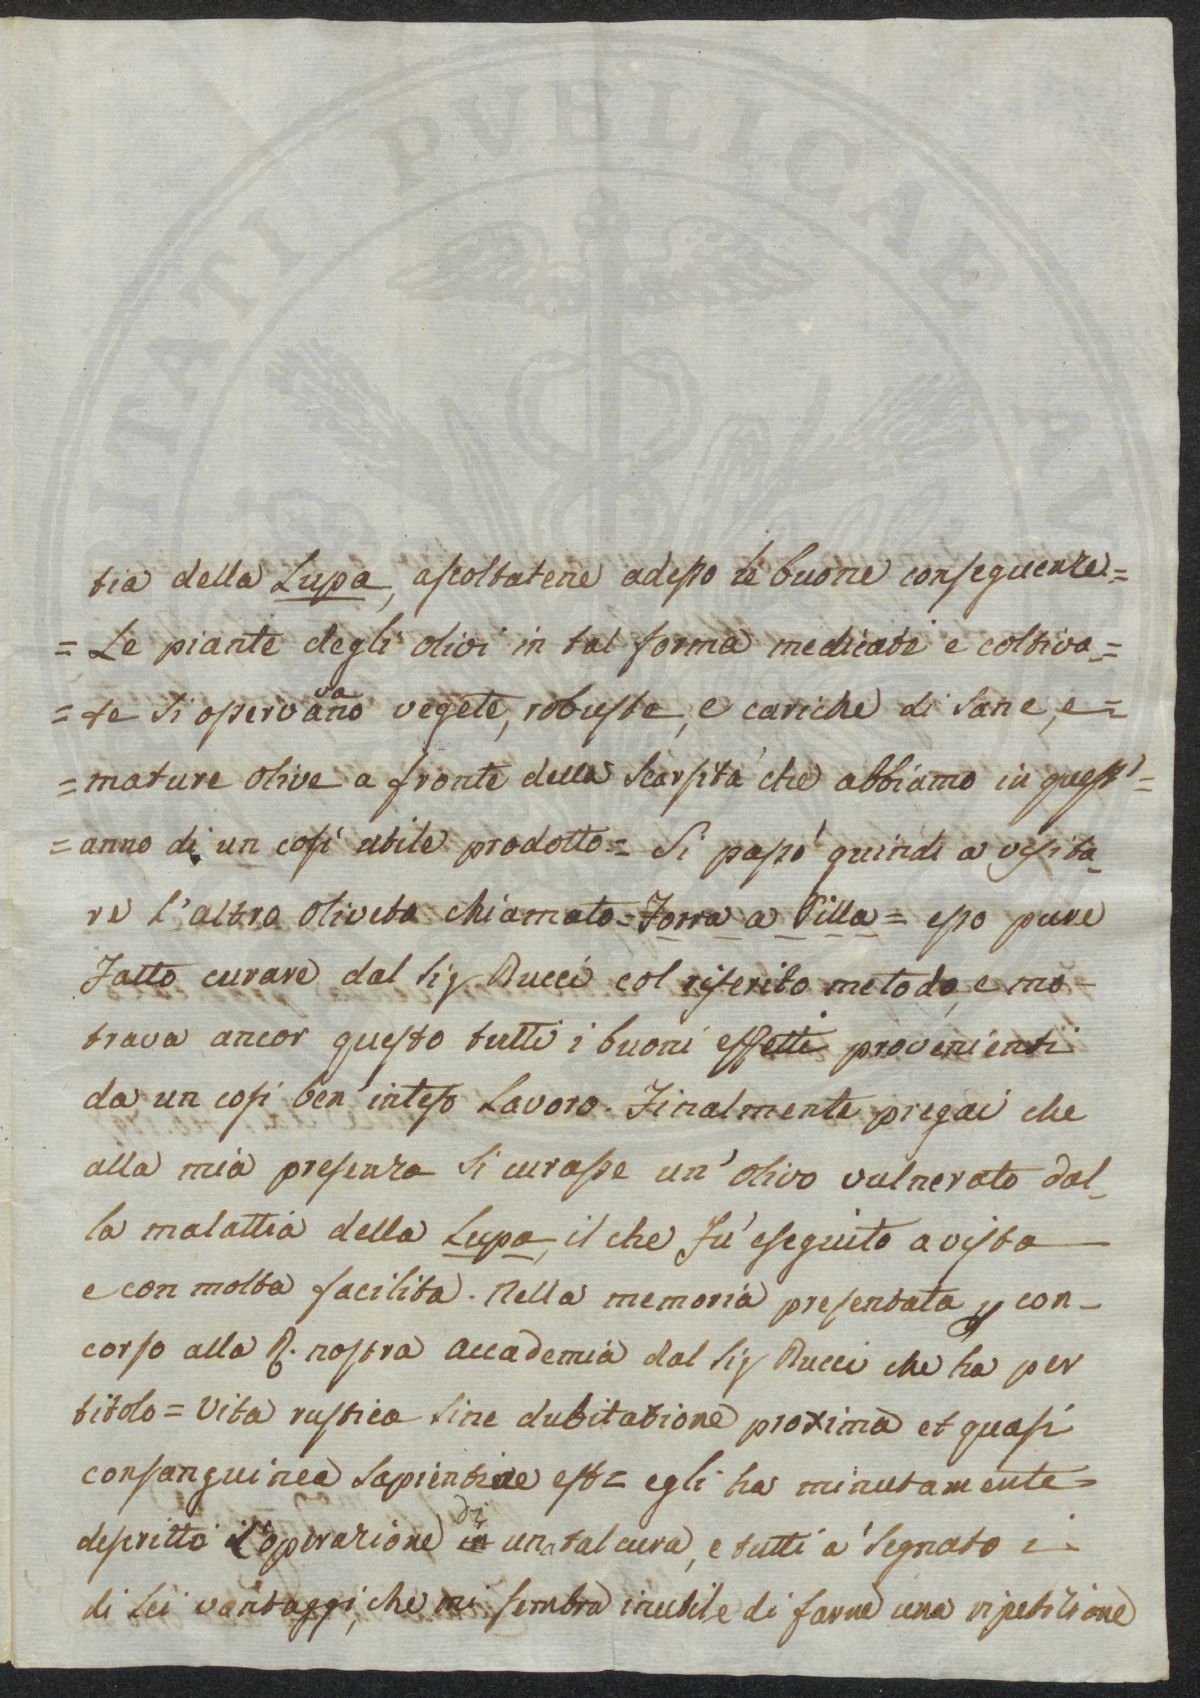 PVBLICAE
BITATI
AVG
tia della Lupa, ascoltatene adesso le buone conseguenze.=
= Le piante degli olivi in tal forma medicate e coltiva=
= te si osservano va vegete, robuste, e cariche di sane, e=
= mature olive a fronte della scarsità che abbiamo in quest'=
= anno di un così utile prodotto= Si passò quindi a visita
re l'altro oliveto chiamato=Torra a Pilla= esso pure
fatto curare dal Sig Bucci col riferito metodo, e mo-
trava ancor questo tutti i buoni effetti provenienti
da un così ben inteso Lavoro. Finalmente pregai che
alla mia presenza si curasse un'olivo vulnerato dal-
la malattia della Lupa, il che fu eseguito a vista
e con molta facilita. Nella memoria presentata p con-
corso alla R. nostra Accademia dal Sig Bucci che ha per
titolo = Vita rustica sine dubitatione proxima et quasi
consanguinea sapientiae est = egli ha minutamente
descritto l'operazione di una tal cura, e tutti à segnato i
di Lei vantaggi, che mi sembra inutile di farne una ripetizione